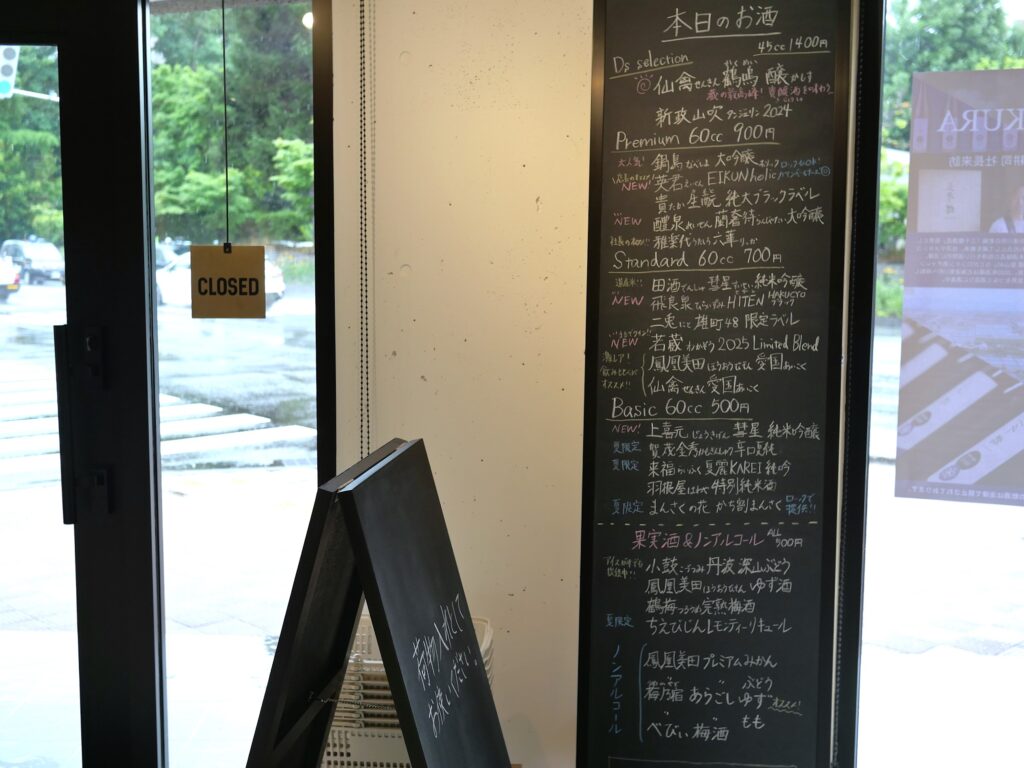 CLOSED
本日のお酒
45cc 1400円
Ds selection
仙禽 せんきん 鶴鳴 かくめい 醸 かもす
蔵の最高峰! 貴醸酒を味わう
新政 山吹 グランジュリン 2024
Premium 60cc 900円
大人気! 鍋島 なべしま 大吟醸
NEW! 英君 えいくん EIKUNholic
貴 たか 生酛 純大 ブラックラベル
NEW 醴泉 れいせん 蘭奢待 らんじゃたい 大吟醸
雅楽代 うたしろ 六華 りっか
Standard 60cc 700円
田酒 でんしゅ 彗星 すいせい 純米吟醸
NEW 飛良泉 ひらいずみ HITEN HAKUCYO
二兎 にと 雄町48 限定ラベル
NEW 若蔵 わかぞう 2025 Limited Blend
激レア! 鳳凰美田 ほうおうびでん 愛国 あいこく
飲み比べが
オススメ!! 仙禽 せんきん 愛国 あいこく
Basic 60cc 500円
NEW! 上喜元 じょうきげん 彗星 純米吟醸
夏限定 賀茂金秀 かもきんしゅう 辛口夏純
夏限定 来福 らいふく 夏霞 KAREI 純吟
羽根屋 はねや 特別純米酒
夏限定 まんさくの花 かち割まんさく ロックで提供!!
果実酒&ノンアルコール ALL 500円
小鼓 こつづみ 丹波 深山ぶどう
鳳凰美田 ほうおうびでん ゆず酒
鶴梅 つるうめ 完熟梅酒
夏限定 ちえびじん レモンティーリキュール
ノンアルコール
鳳凰美田 プレミアムみかん
〃 ぶどう
梅乃宿 あらごし ゆず オススメ!!
〃 もも
べびぃ梅酒
荷物入れとして
お使いください。
KURA
社長来訪